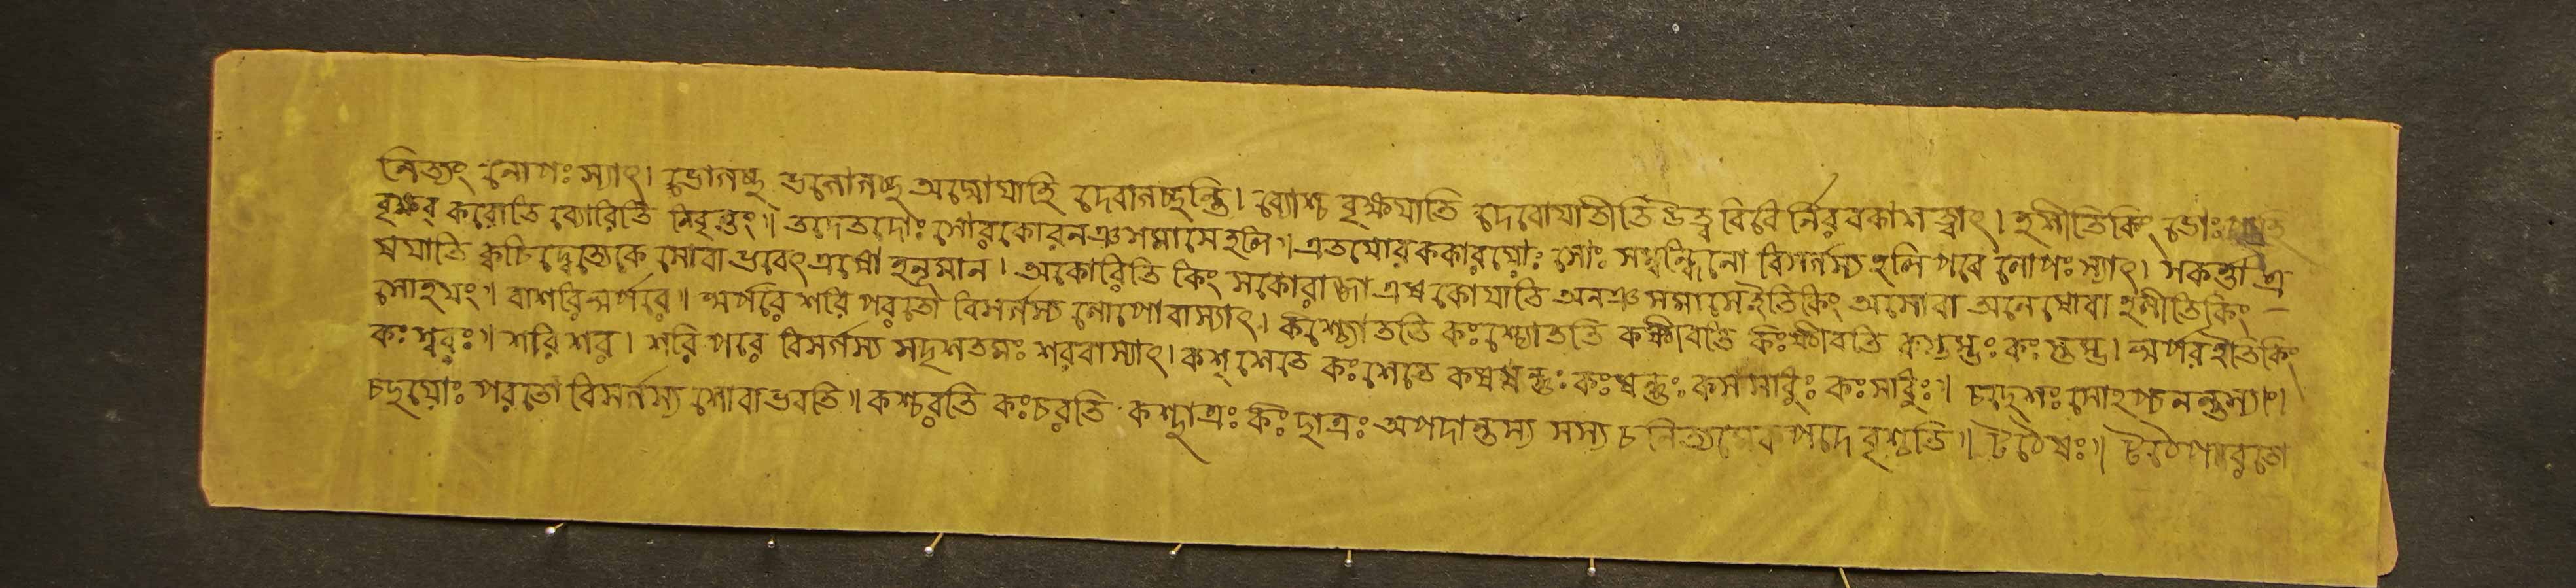 নিত্যং লোপঃ স্যাৎ। ভোগচ্ছ ভগোগচ্ছ অঘোযাহি দেবাগচ্ছন্তি। ব্যোশ্চ বৃক্ষযাতি দেবোযাতীতি উত্ববিধে র্নিরবকাশত্বাৎ। হশীতিকিং ভোঃ
বৃক্ষব্ করোতি ব্যোরিতি নিবৃত্তং॥ তদেতদোঃ সোরকোরনঞসমাসে হলি॥ এতয়োরককারয়োঃ সোঃ সম্বন্ধিনো বিসর্গস্য হলি পরে লোপঃ স্যাৎ। সকর্ত্তা এ
ষযাতি ক্বচিদ্বেত্যেকে সোবা ভবেৎ এষো হনূমান। অকোরিতি কিং সকোরাজা এষকোযাতি অনঞসমাসেইতিকিং অসোবা অনেষোবা হলীতিকিং –
সোহয়ং॥ বাশরিখর্পরে॥ খর্পরে শরি পরতো বিসর্গস্য লোপোবাস্যাৎ। কশ্চ্যোততি কঃশ্চ্যোততি কষ্ঠীবতি কঃষ্ঠীবতি কস্তম্ভঃ কঃস্তম্ভ। খর্পরইতিকিং
কঃশ্বরঃ॥ শরি শর। শরি পরে বিসর্গস্য সদৃশতমঃ শরবাস্যাৎ। কশ্ শেতে কঃ শেতে কষ্ষণ্ডঃ কঃষণ্ডঃ কসসাধুঃ কঃসাধুঃ॥
চছয়োঃ পরতো বিসর্গস্য শোবাভবতি॥ কশ্চরতি কঃচরতি কশ্ছাত্রঃ কঃ ছাত্রঃ অপদান্তস্য সস্য চ নিত্যমেকপদে বৃশ্চতি॥ টঠেষঃ॥